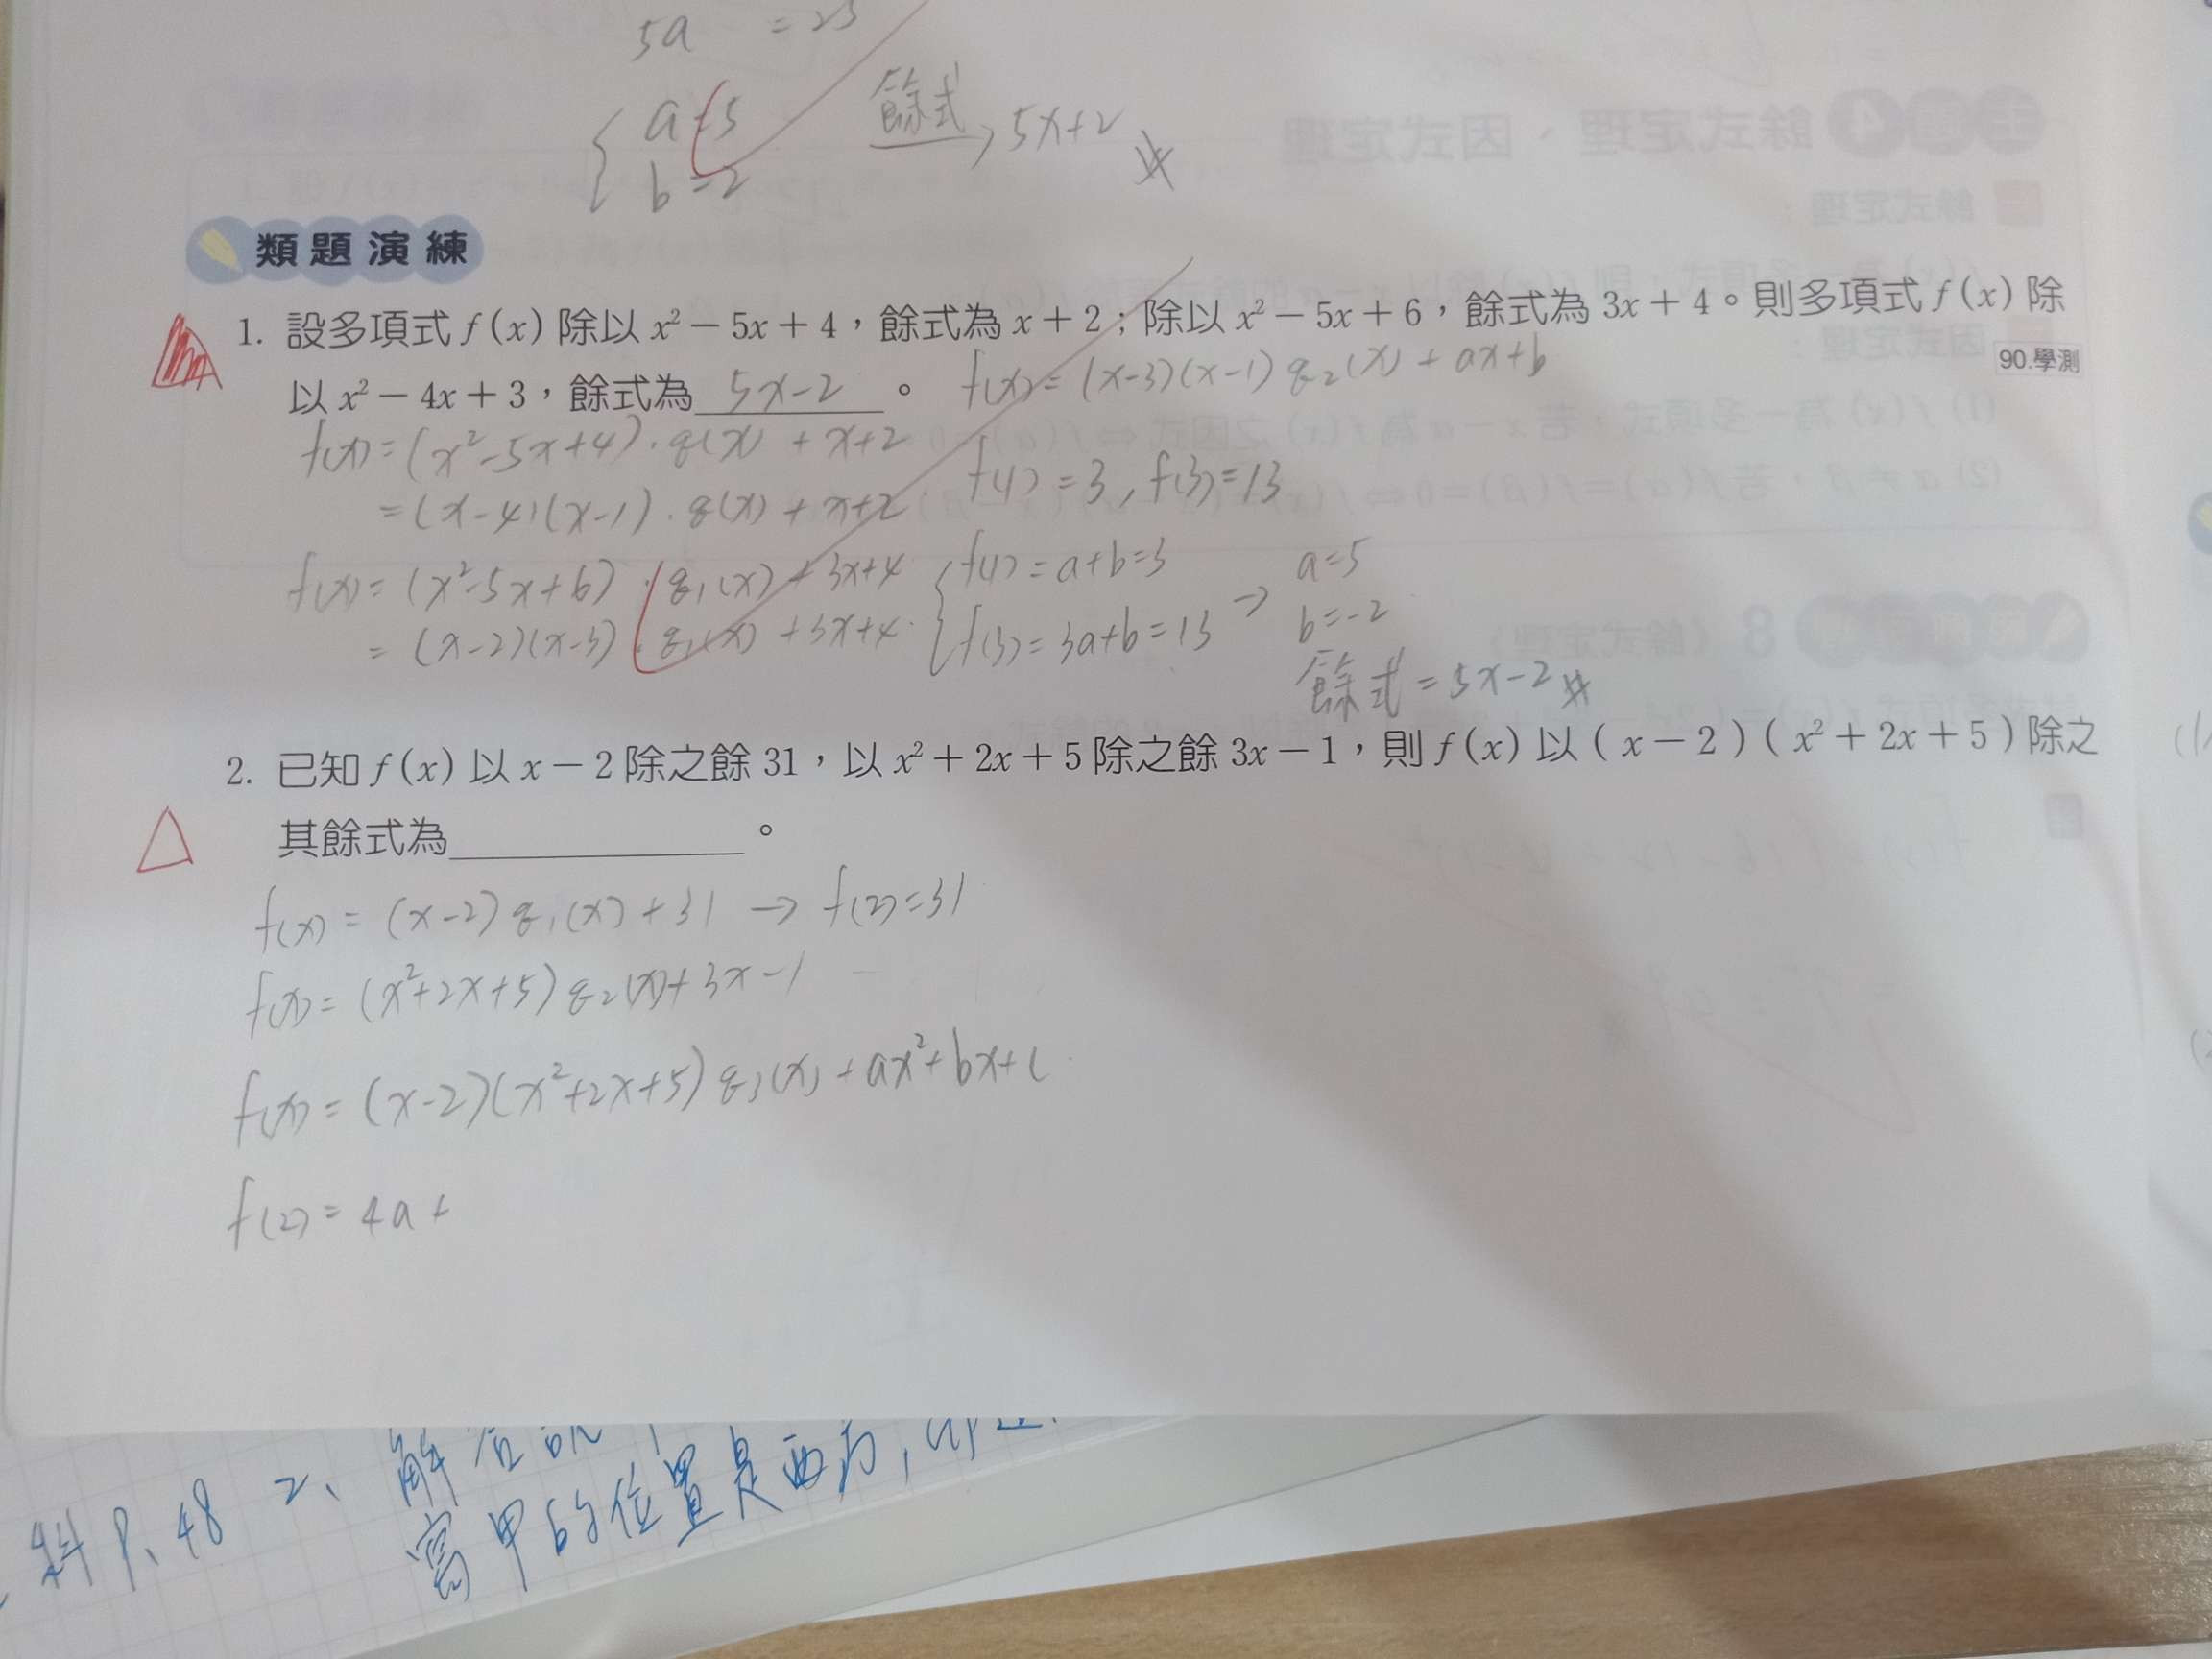 5a = 25
a=5
b=2
餘式 → 5x+2
類題演練
1. 設多項式 f(x) 除以 x² − 5x + 4，餘式為 x + 2；除以 x² − 5x + 6，餘式為 3x + 4。則多項式 f(x) 除
以 x² − 4x + 3，餘式為 5x-2 。
90.學測
f(x) = (x-3)(x-1) q₂(x) + ax+b
f(x) = (x²-5x+4)·q(x) + x+2
= (x-4)(x-1)·q(x) + x+2
f(1) = 3, f(3)=13
f(x) = (x²-5x+6)·q₁(x) + 3x+4
= (x-2)(x-3)·q₁(x) + 3x+4
f(1) = a+b=3
f(3) = 3a+b=13
→ a=5
b=-2
餘式 = 5x-2
2. 已知 f(x) 以 x − 2 除之餘 31，以 x² + 2x + 5 除之餘 3x − 1，則 f(x) 以 ( x − 2 ) ( x² + 2x + 5 ) 除之
其餘式為 。
f(x) = (x-2) q₁(x) + 31 → f(2)=31
f(x) = (x²+2x+5) q₂(x) + 3x-1
f(x) = (x-2)(x²+2x+5) q₃(x) + ax²+bx+c
f(2) = 4a+
料 P.48 2、解
寫甲的位置是西方,